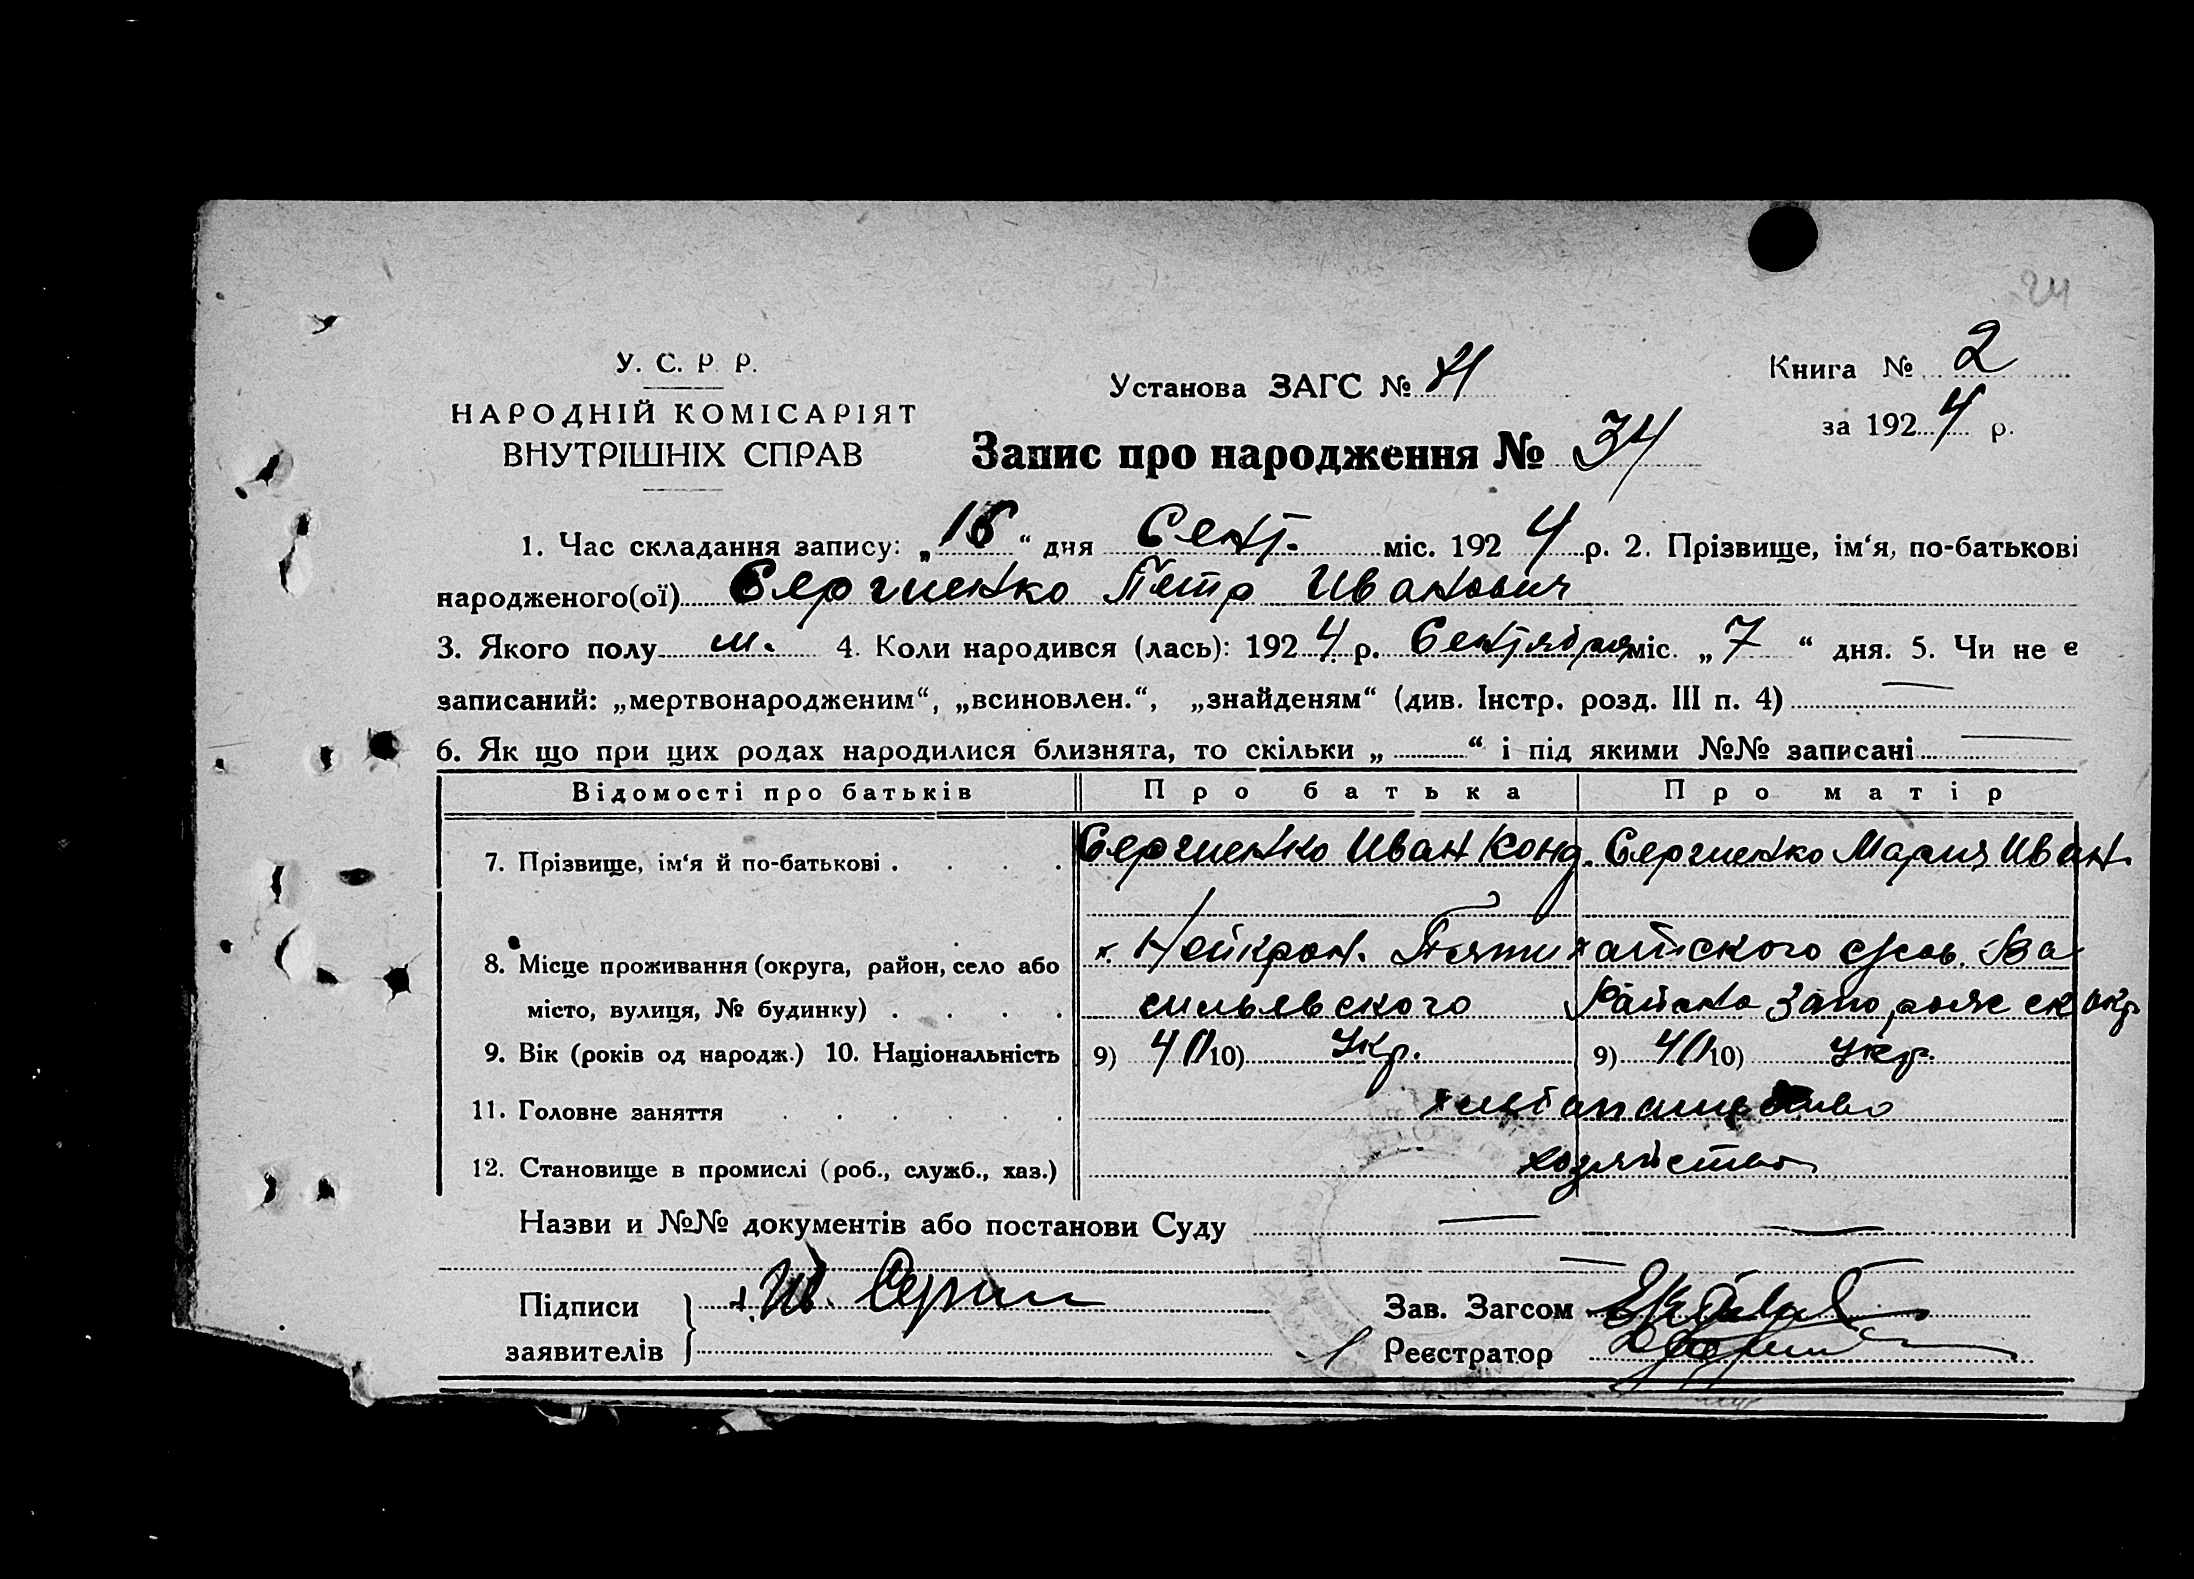 24
У. С. Р. Р.
НАРОДНІЙ КОМІСАРІЯТ
ВНУТРІШНІХ СПРАВ
Установа ЗАГС №
Книга № 2
за 1924 р.
Запис про народження № 34
1. Час складання запису: „16“ дня Сент. міс. 1924 р. 2. Прізвище, ім‘я, по-батькові
народженого(ої) Сергиенко Петр Иванович
3. Якого полу м. 4. Коли народився (лась): 1924 р. Сентября міс. „7“ дня. 5. Чи не є
записаний: „мертвонародженим“, „всиновлен.“, „знайденям“ (див. Інстр. розд. III п. 4) —
6. Як що при цих родах народилися близнята, то скільки „ “ і під якими №№ записані —
Відомості про батьків Про батька Про матір
7. Прізвище, ім‘я й по-батькові . . . . Сергиенко Иван Конд. Сергиенко Мария Иван.
8. Місце проживання (округа, район, село або х. Нейкрон. Пятихатского сельсов. Ва
місто, вулиця, № будинку) . . . . сильевского Района Запорожск окр.
9. Вік (років од народж.) 10. Національність 9) 40 10) Укр. 9) 40 10) Укр.
11. Головне заняття . . . . . . хлебопашество
12. Становище в промислі (роб., служб., хаз.) хозяйство
Назви и №№ документів або постанови Суду — —
Підписи
заявителів
Зав. Загсом
Реєстратор